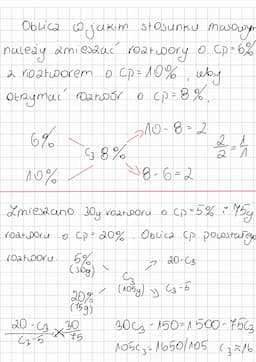 Oblicz w jakim stosunku masowym
należy zmieszać roztwory o Cp=6%
z roztworem o Cp=10%, aby
otrzymać roztwór o Cp=8%.
6% 10-8=2
C₃ 8% 2/2=1/1
10% 8-6=2
Zmieszano 30g roztworu o Cp=5% i 75g
roztworu o Cp=20%. Oblicz Cp powstałego
roztworu.
5% (30g) 20-C₃
C₃ (105g)
20% (75g) C₃-5
20-C₃/C₃-5 × 30/75 30C₃-150=1500-75C₃
105C₃=1650/105 C₃≈16